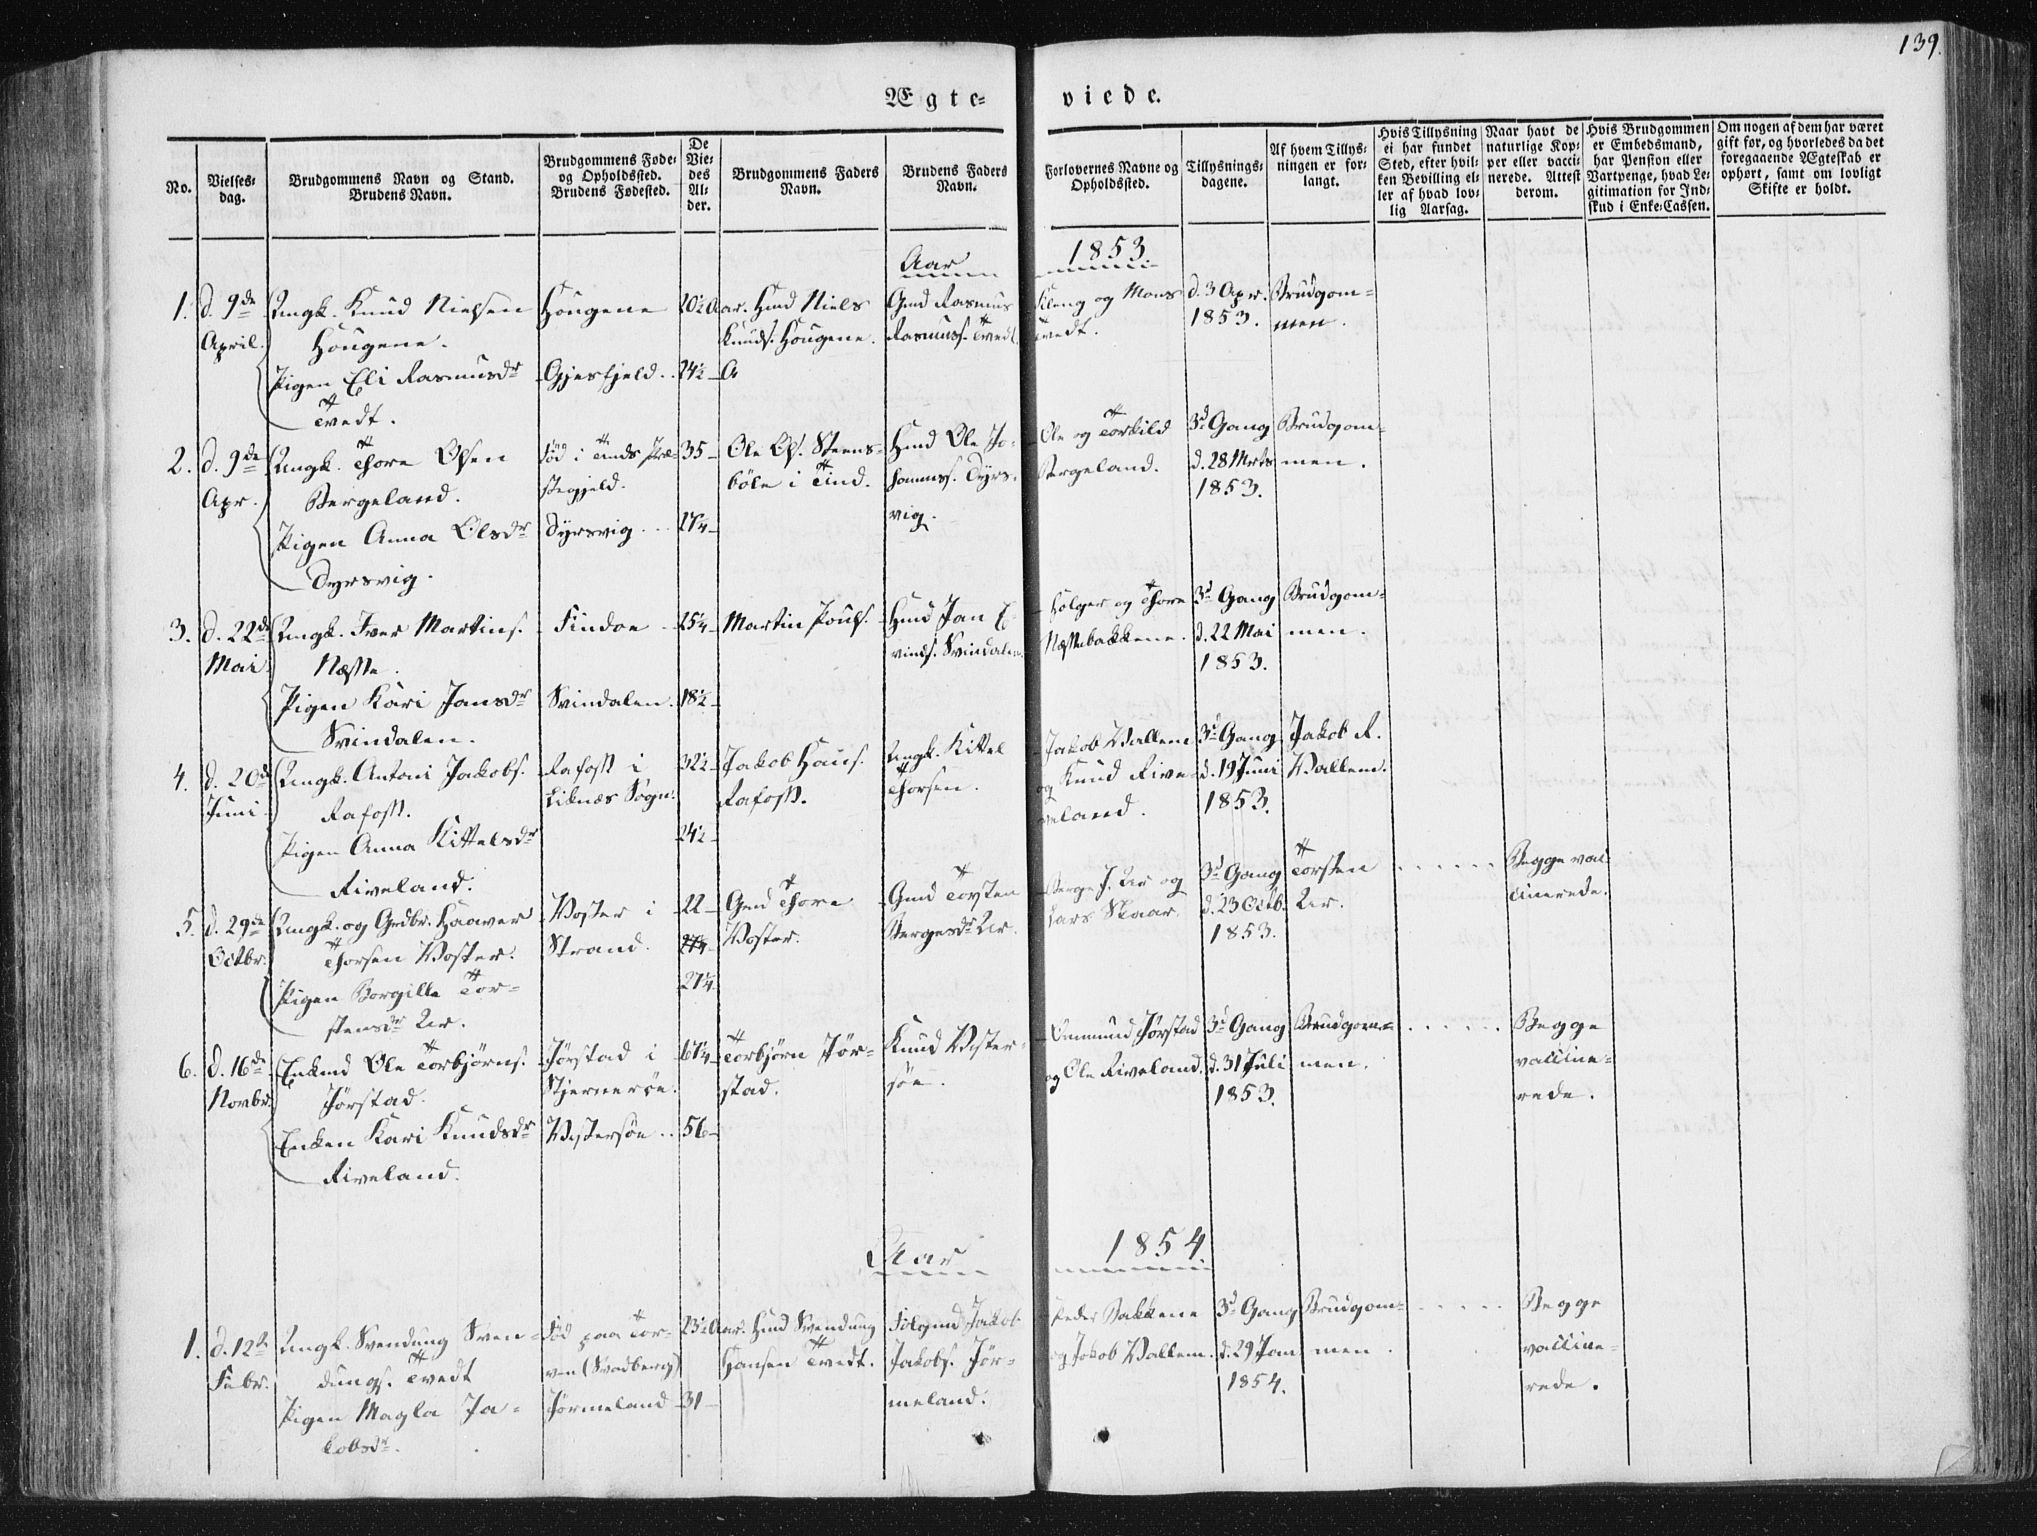 139.
Ægte-
viede.
No.
Vielses-
dag.
Brudgommens Navn og Stand.
Brudens Navn.
Brudgommens Føde-
og Opholdssted.
Brudens Fødested.
De
Vie-
des
Al-
der.
Brudgommens Faders
Navn.
Brudens Faders
Navn.
Forlovernes Navne og
Opholdssted.
Tillysnings-
dagene.
Af hvem Tillys-
ningen er for-
langt.
Hvis Tillysning
ei har fundet
Sted, efter hvil-
ken Bevilling el-
ler af hvad lov-
lig Aarsag.
Naar havt de
naturlige Kop-
per eller vacci-
nerede. Attest
derom.
Hvis Brudgommen
er Embedsmand,
har Pension eller
Vartpenge, hvad Le-
gitimation for Ind-
skud i Enke-Cassen.
Om nogen af dem har været
gift før, og hvorledes da det
foregaaende Ægteskab er
ophørt, samt om lovligt
Skifte er holdt.
Aar 1853.
1. d. 9de
April.
Ungk. Knud Nielsen
Hougene.
Pigen Eli Rasmusdr
Tvedt.
Hougene
Gjesfjeld
20½ Aar.
24½
Gmd Niels
Knuds. Hougene.
Gmd Rasmus
Rasmuss. Tvedt.
og Mons
Tvedt.
d. 3 Apr.
1853.
Brudgom-
men.
2. d. 9de
Apr.
Ungk. Thore Olsen
Bergeland.
Pigen Anna Olsdr
Dyrsvig.
Fød i Tinds Præ-
stegjeld.
Dyrsvig
35
27¼
Ole Ol. Steens-
böle i Tind.
Hmd Ole Jo-
hannss. Dyrs-
vig.
Ole og Torkild
Bergeland.
3d Gang
d. 28 Mrts
1853.
Brudgom-
men.
3. d. 22de
Mai
Ungk. Iver Martins.
Næsse.
Pigen Kari Jansdr
Svindalen.
Findøe
Svindalen.
25¼
18½
Martin Pouls.
Hmd Jan E-
vinds. Svindalen
Holger og Thore
Næssebakkene.
3d Gang
d. 22 Mai
1853.
Brudgom-
men.
4. d. 20de
Juni
Ungk. Antoni Jakobs.
Rafoss.
Pigen Anna Kittelsdr
Riveland.
Rafoss i
Liknæs Sogn.
32½
24½
Jakob Hans.
Rafoss.
Ungk. Kittel
Thorsen.
Jakob Vallem
og Knud Rive-
veland.
3d Gang
d. 19 Juni
1853.
Jakob R.
Vallem.
5. d. 29de
Octbr.
Ungk. og Grdbr. Haaver
Thorsen Voster.
Pigen Borgille Tor-
stensdr Ur.
Voster i
Strand.
22
27¼
Gmd Thore
Voster.
Gmd Torsten
Bergesdr Ur.
Berge J. Ur og
Lars Skaar.
3d Gang
d. 23 Octb.
1853.
Torsten
Ur.
Begge vac-
cinerede.
6. d. 16de
Novbr.
Enkmd Ole Torbjørns.
Jörstad.
Enken Kari Knudsdr
Riveland.
Jörstad i
Stjernerøe.
Vestersøe
67¼
56
Torbjörn Jör-
stad.
Knud Vester-
söe.
Ommund Jörstad
og Ole Riveland.
3d Gang
d. 31 Juli
1853.
Brudgom-
men.
Begge
vaccine-
rede.
Aar 1854.
1. d. 12te
Febr.
Ungk. Svendung Sven-
dungs. Tvedt
Pigen Magla Ja-
kobsdr.
Fød paa Tor-
ven (Svadberg)
Jörmeland
23½ Aar.
31
Hmd Svendung
Hansen Tvedt.
Jakob
Jakobs. Jör-
meland.
Peder Bakkene
og Jakob Vallem.
3d Gang
d. 29 Jan
1854.
Brudgom-
men.
Begge
vaccine-
rede.